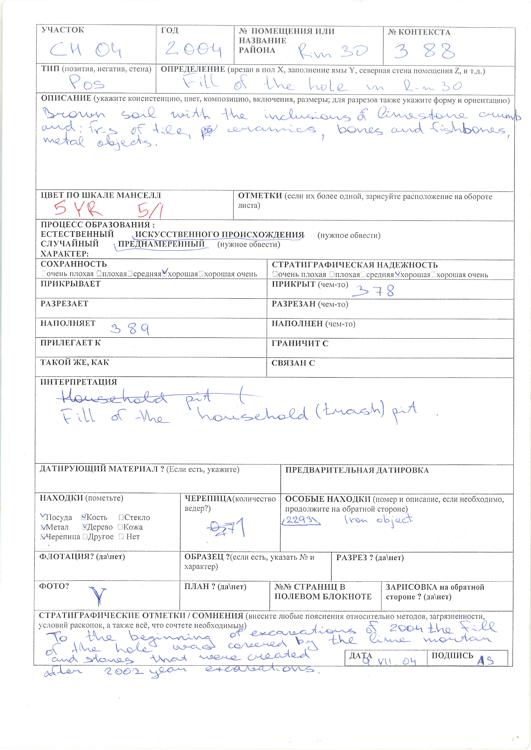 УЧАСТОК
CH 04
ГОД
2004
№ ПОМЕЩЕНИЯ ИЛИ НАЗВАНИЕ РАЙОНА
Rm 30
№ КОНТЕКСТА
388
ТИП (позитив, негатив, стена)
Pos
ОПРЕДЕЛЕНИЕ (врезан в пол X, заполнение ямы Y, северная стена помещения Z, и т.д.)
Fill of the hole in Rm 30
ОПИСАНИЕ (укажите консистенцию, цвет, композицию, включения, размеры; для разрезов также укажите форму и ориентацию)
Brown soil with the inclusions of limestone crumb
and: frs of tile, ceramics, bones and fishbones,
metal objects.
ЦВЕТ ПО ШКАЛЕ МАНСЕЛЛ
5YR 5/1
ОТМЕТКИ (если их более одной, зарисуйте расположение на обороте листа)
ПРОЦЕСС ОБРАЗОВАНИЯ :
ЕСТЕСТВЕННЫЙ ИСКУССТВЕННОГО ПРОИСХОЖДЕНИЯ (нужное обвести)
СЛУЧАЙНЫЙ ПРЕДНАМЕРЕННЫЙ (нужное обвести)
ХАРАКТЕР:
СОХРАННОСТЬ
очень плохая плохая средняя хорошая хорошая очень
СТРАТИГРАФИЧЕСКАЯ НАДЕЖНОСТЬ
очень плохая плохая средняя хорошая хорошая очень
ПРИКРЫВАЕТ
ПРИКРЫТ (чем-то) 378
РАЗРЕЗАЕТ
РАЗРЕЗАН (чем-то)
НАПОЛНЯЕТ 389
НАПОЛНЕН (чем-то)
ПРИЛЕГАЕТ К
ГРАНИЧИТ С
ТАКОЙ ЖЕ, КАК
СВЯЗАН С
ИНТЕРПРЕТАЦИЯ
Household pit (
Fill of the household (trash) pit.
ДАТИРУЮЩИЙ МАТЕРИАЛ ? (Если есть, укажите)
ПРЕДВАРИТЕЛЬНАЯ ДАТИРОВКА
НАХОДКИ (пометьте)
Посуда Кость Стекло
Металл Дерево Кожа
Черепица Другое Нет
ЧЕРЕПИЦА(количество ведер?)
ОСОБЫЕ НАХОДКИ (номер и описание, если необходимо, продолжите на обратной стороне)
Iron object
ФЛОТАЦИЯ? (да\нет)
ОБРАЗЕЦ ?(если есть, указать № и характер)
РАЗРЕЗ ? (да\нет)
ФОТО?
ПЛАН ? (да\нет)
№№ СТРАНИЦ В ПОЛЕВОМ БЛОКНОТЕ
ЗАРИСОВКА на обратной стороне ? (да\нет)
СТРАТИГРАФИЧЕСКИЕ ОТМЕТКИ / СОМНЕНИЯ (внесите любые пояснения относительно методов, загрязненности, условий раскопок, а также всё, что сочтете необходимым)
To the beginning of excavations of 2004 the fill
of the hole was covered by the lime mortar
and stones that were created
after 2002 year excavations.
ДАТА
9 VII. 04
ПОДПИСЬ AS